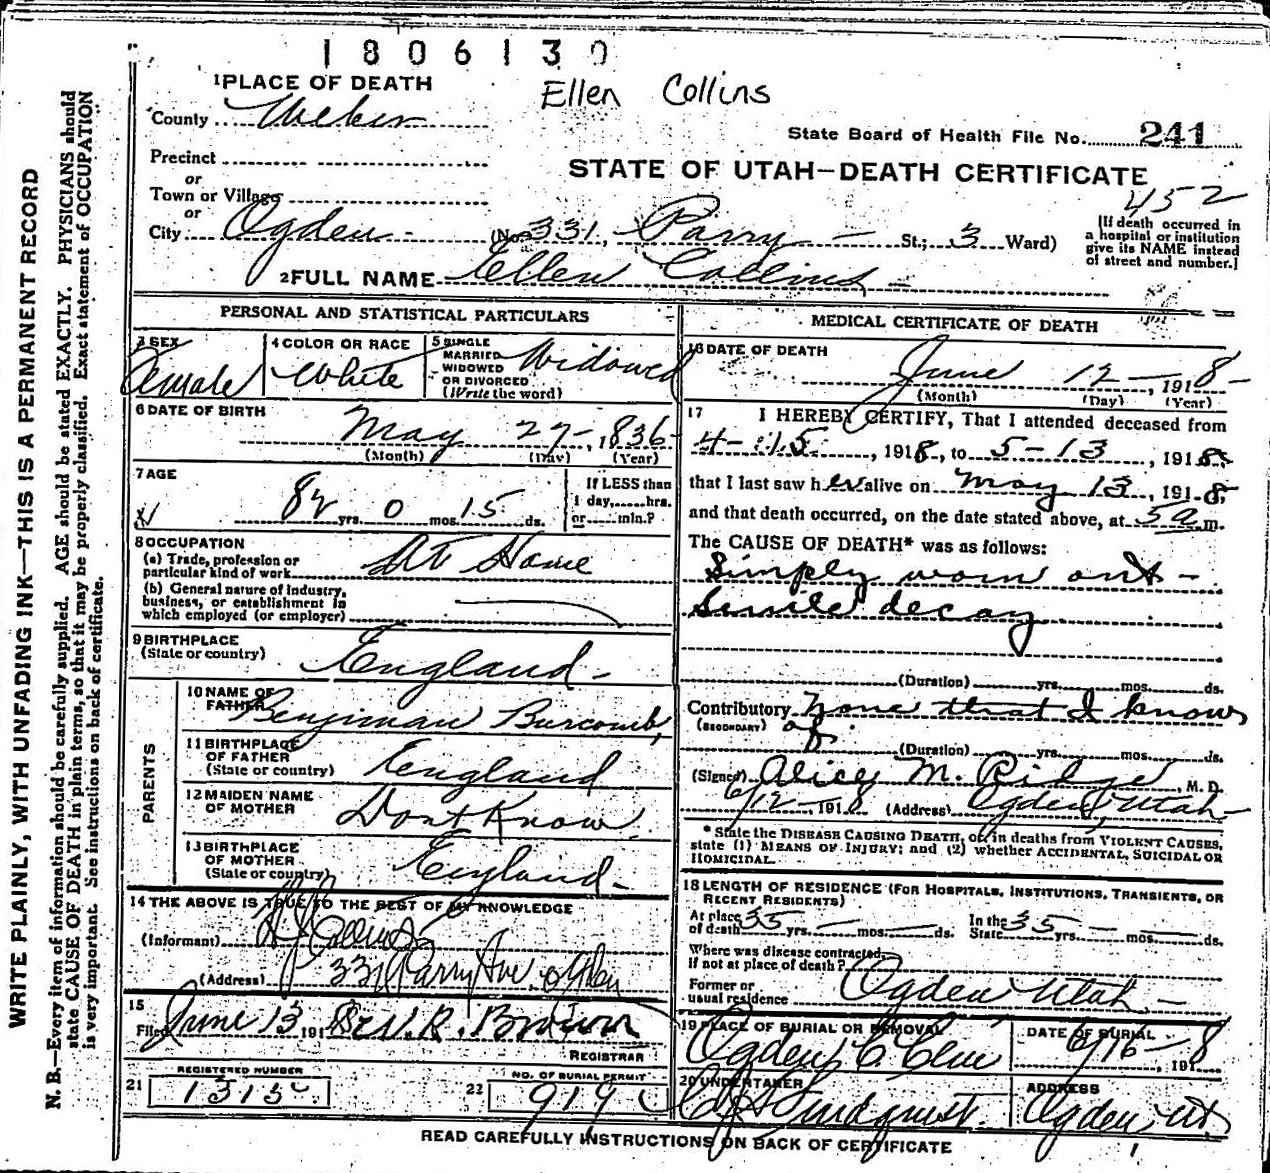 1806130
Ellen Collins
1 PLACE OF DEATH
County Weber
State Board of Health File No. 241
Precinct
STATE OF UTAH—DEATH CERTIFICATE
or
Town or Village
452
or
City Ogden (No. 331, Parry St.; 3 Ward)
[If death occurred in
a hospital or institution
give its NAME instead
of street and number.]
2 FULL NAME Ellen Collins
PERSONAL AND STATISTICAL PARTICULARS
3 SEX Female
4 COLOR OR RACE White
5 SINGLE
MARRIED
WIDOWED
OR DIVORCED
(Write the word) Widowed
6 DATE OF BIRTH
May 27, 1836
(Month) (Day) (Year)
7 AGE
82 yrs. 0 mos. 15 ds.
If LESS than
1 day, hrs.
or min.?
8 OCCUPATION
(a) Trade, profession or
particular kind of work At Home
(b) General nature of industry,
business, or establishment in
which employed (or employer)
9 BIRTHPLACE
(State or country) England
PARENTS
10 NAME OF
FATHER Benjiman Burcomb,
11 BIRTHPLACE
OF FATHER
(State or country) England
12 MAIDEN NAME
OF MOTHER Dont Know
13 BIRTHPLACE
OF MOTHER
(State or country) England
14 THE ABOVE IS TRUE TO THE BEST OF MY KNOWLEDGE
(Informant) Collins
(Address) 331 Parry Ave. Ogden
15
Filed June 13 191 Geo. R. Brown
REGISTRAR
21 REGISTERED NUMBER
1315
22 NO. OF BURIAL PERMIT
919
MEDICAL CERTIFICATE OF DEATH
16 DATE OF DEATH
June 12, 1918
(Month) (Day) (Year)
17 I HEREBY CERTIFY, That I attended deceased from
4-15, 1918, to 5-13, 1918,
that I last saw her alive on May 13, 1918,
and that death occurred, on the date stated above, at 5 a m.
The CAUSE OF DEATH* was as follows:
Simply worn out—
Senile decay
(Duration) yrs. mos. ds.
Contributory None that I know
(SECONDARY) of.
(Duration) yrs. mos. ds.
(Signed) Alice M. Ridge, M. D.
6/12-1918 (Address) Ogden, Utah
* State the DISEASE CAUSING DEATH, or, in deaths from VIOLENT CAUSES,
state (1) MEANS OF INJURY; and (2) whether ACCIDENTAL, SUICIDAL OR
HOMICIDAL.
18 LENGTH OF RESIDENCE (FOR HOSPITALS, INSTITUTIONS, TRANSIENTS, OR
RECENT RESIDENTS)
At place
of death 35 yrs. mos. ds.
In the
State 35 yrs. mos. ds.
Where was disease contracted,
if not at place of death?
Former or
usual residence Ogden Utah
19 PLACE OF BURIAL OR REMOVAL
Ogden C. Cem
DATE OF BURIAL
6/16-, 1918
20 UNDERTAKER
Lindquist.
ADDRESS
Ogden, Ut.
READ CAREFULLY INSTRUCTIONS ON BACK OF CERTIFICATE
WRITE PLAINLY, WITH UNFADING INK—THIS IS A PERMANENT RECORD
N. B.—Every item of information should be carefully supplied. AGE should be stated EXACTLY. PHYSICIANS should
state CAUSE OF DEATH in plain terms, so that it may be properly classified. Exact statement of OCCUPATION
is very important. See instructions on back of certificate.